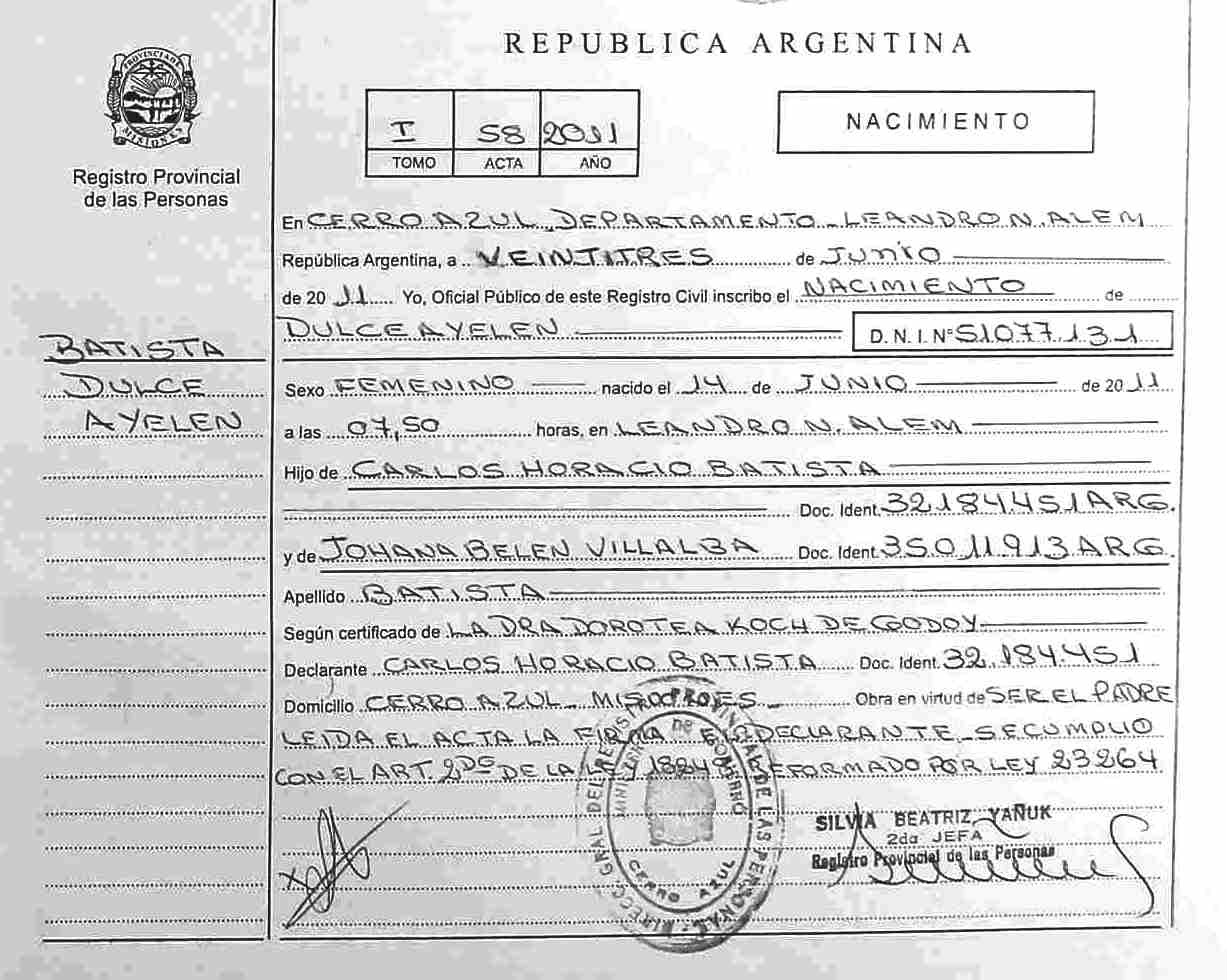 REPUBLICA ARGENTINA
PROVINCIA DE MISIONES
Registro Provincial
de las Personas
I 58 2011
TOMO ACTA AÑO
NACIMIENTO
En CERRO AZUL, DEPARTAMENTO LEANDRO N. ALEM
República Argentina, a VEINTITRES de JUNIO
de 2011 Yo, Oficial Público de este Registro Civil inscribo el NACIMIENTO de
DULCE AYELEN D. N. I. Nº 51.077.131
BATISTA
DULCE
AYELEN
Sexo FEMENINO nacido el 14 de JUNIO de 2011
a las 07,50 horas, en LEANDRO N. ALEM
Hijo de CARLOS HORACIO BATISTA
Doc. Ident. 32.184.451 ARG.
y de JOHANA BELEN VILLALBA Doc. Ident. 35.011.913 ARG.
Apellido BATISTA
Según certificado de LA DRA DOROTEA KOCH DE GODOY
Declarante CARLOS HORACIO BATISTA Doc. Ident. 32.184.451
Domicilio CERRO AZUL MISIONES Obra en virtud de SER EL PADRE
LEIDA EL ACTA LA FIRMA EL DECLARANTE SE CUMPLIO
CON EL ART. 2DO DE LA LEY REFORMADO POR LEY 23264
SILVIA BEATRIZ YAÑUK
2da JEFA
Registro Provincial de las Personas
DIRECC. GRAL DEL REGISTRO PROVINCIAL DE LAS PERSONAS
CERRO AZUL